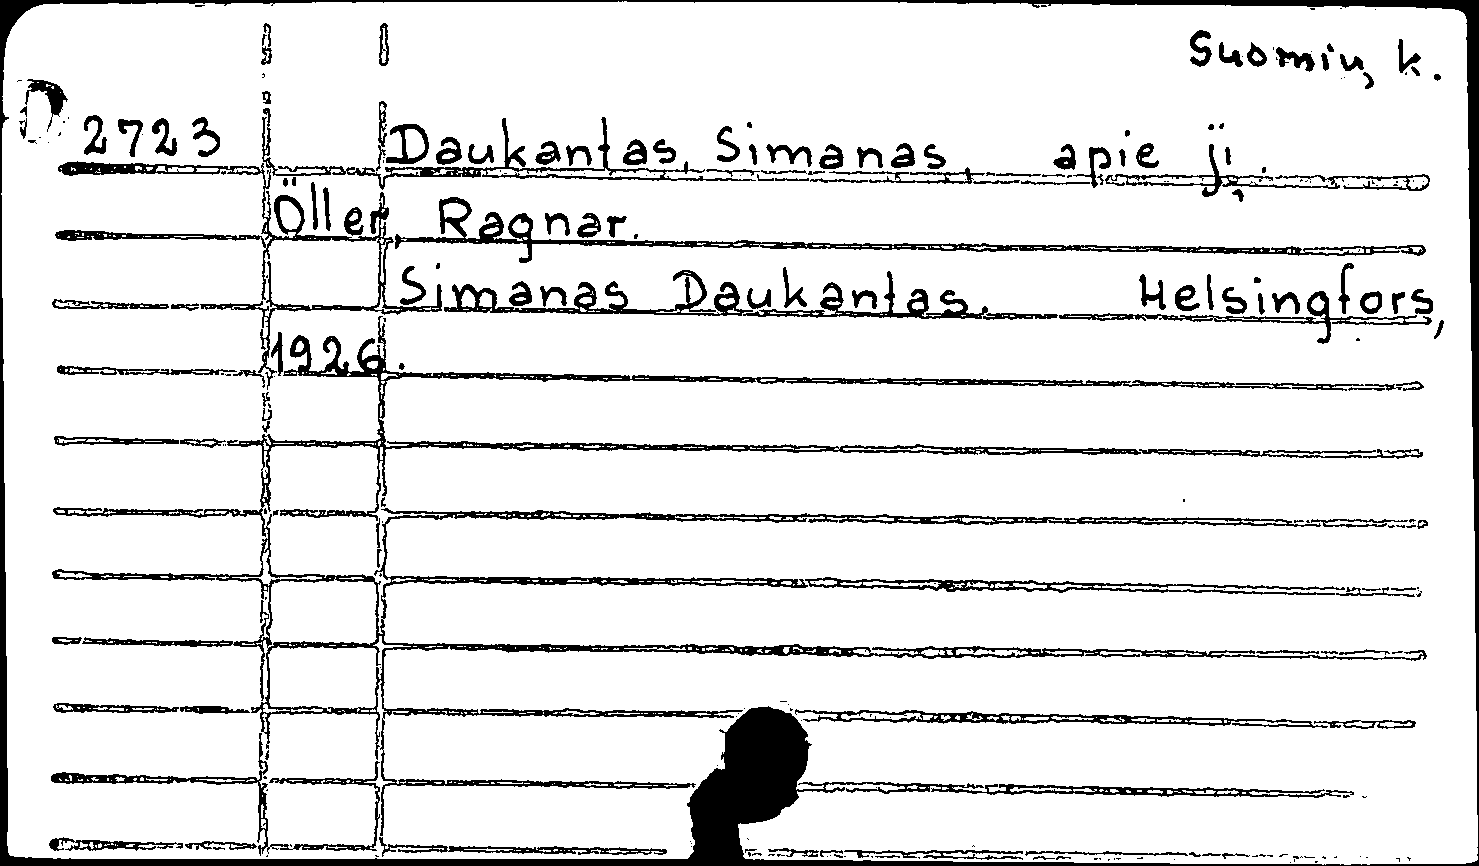 Suomių k.
D 2723 Daukantas, Simanas, apie jį.
Öller, Ragnar.
Simanas Daukantas. Helsingfors,
1926.